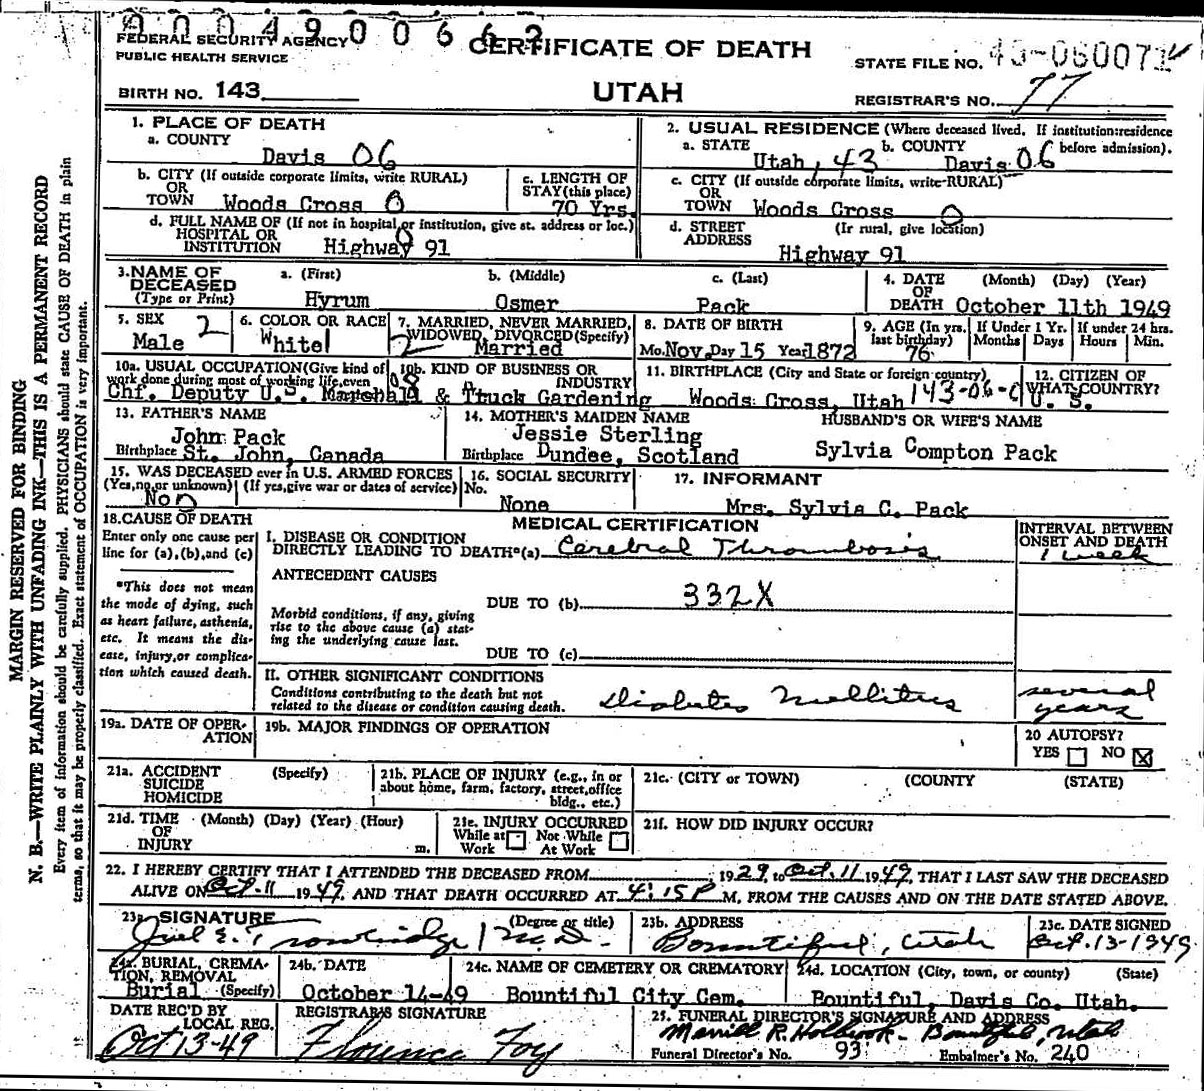 0 0 0 4 9 0 0 6 6 2
FEDERAL SECURITY AGENCY
PUBLIC HEALTH SERVICE
CERTIFICATE OF DEATH
STATE FILE NO. 49-060071
BIRTH NO. 143
UTAH
REGISTRAR'S NO. 77
MARGIN RESERVED FOR BINDING
N. B.—WRITE PLAINLY WITH UNFADING INK—THIS IS A PERMANENT RECORD
Every item of information should be carefully supplied. PHYSICIANS should state CAUSE OF DEATH in plain
terms, so that it may be properly classified. Exact statement of OCCUPATION is very important.
1. PLACE OF DEATH
a. COUNTY
Davis 06
b. CITY (If outside corporate limits, write RURAL)
OR
TOWN Woods Cross 0
c. LENGTH OF
STAY (this place)
70 Yrs.
d. FULL NAME OF (If not in hospital or institution, give st. address or loc.)
HOSPITAL OR
INSTITUTION Highway 91
0
2. USUAL RESIDENCE (Where deceased lived. If institution:residence
before admission).
a. STATE b. COUNTY
Utah, 43 Davis 06
c. CITY (If outside corporate limits, write RURAL)
OR
TOWN Woods Cross 0
d. STREET (If rural, give location)
ADDRESS
Highway 91
3. NAME OF
DECEASED
(Type or Print)
a. (First) b. (Middle) c. (Last)
Hyrum Osmer Pack
4. DATE (Month) (Day) (Year)
OF
DEATH October 11th 1949
5. SEX 2
Male
6. COLOR OR RACE
White 1
7. MARRIED, NEVER MARRIED,
WIDOWED, DIVORCED (Specify)
2 Married
8. DATE OF BIRTH
Mo. Nov. Day 15 Year 1872
9. AGE (In yrs.
last birthday)
76
If Under 1 Yr.
Months Days
If under 24 hrs.
Hours Min.
10a. USUAL OCCUPATION (Give kind of
work done during most of working life, even
10b. KIND OF BUSINESS OR
INDUSTRY
Chf. Deputy U.S. Marshall & Truck Gardening
11. BIRTHPLACE (City and State or foreign country)
Woods Cross, Utah 143-06-0
12. CITIZEN OF
WHAT COUNTRY?
U. S.
13. FATHER'S NAME
John Pack
Birthplace St. John, Canada
14. MOTHER'S MAIDEN NAME
Jessie Sterling
Birthplace Dundee, Scotland
HUSBAND'S OR WIFE'S NAME
Sylvia Compton Pack
15. WAS DECEASED ever in U.S. ARMED FORCES
(Yes, no, or unknown) (If yes, give war or dates of service)
No 0
16. SOCIAL SECURITY
No.
None
17. INFORMANT
Mrs. Sylvia C. Pack
18. CAUSE OF DEATH
Enter only one cause per
line for (a), (b), and (c)
*This does not mean
the mode of dying, such
as heart failure, asthenia,
etc. It means the dis-
ease, injury, or complica-
tion which caused death.
MEDICAL CERTIFICATION
I. DISEASE OR CONDITION
DIRECTLY LEADING TO DEATH*(a) Cerebral Thrombosis
ANTECEDENT CAUSES
Morbid conditions, if any, giving
rise to the above cause (a) stat-
ing the underlying cause last.
DUE TO (b) 332X
DUE TO (c)
INTERVAL BETWEEN
ONSET AND DEATH
1 week
II. OTHER SIGNIFICANT CONDITIONS
Conditions contributing to the death but not
related to the disease or condition causing death.
Diabetes Mellitus
several
years
19a. DATE OF OPER-
ATION
19b. MAJOR FINDINGS OF OPERATION
20 AUTOPSY?
YES NO X
21a. ACCIDENT (Specify)
SUICIDE
HOMICIDE
21b. PLACE OF INJURY (e.g., in or
about home, farm, factory, street, office
bldg., etc.)
21c. (CITY or TOWN) (COUNTY) (STATE)
21d. TIME (Month) (Day) (Year) (Hour)
OF
INJURY m.
21e. INJURY OCCURRED
While at Not While
Work At Work
21f. HOW DID INJURY OCCUR?
22. I HEREBY CERTIFY THAT I ATTENDED THE DECEASED FROM 1929, to Oct. 11 1949, THAT I LAST SAW THE DECEASED
ALIVE ON Oct. 11 1949, AND THAT DEATH OCCURRED AT 4:15 P M, FROM THE CAUSES AND ON THE DATE STATED ABOVE.
23a. SIGNATURE (Degree or title)
Joel E. Trowbridge M.D.
23b. ADDRESS
Bountiful, Utah
23c. DATE SIGNED
Oct. 13-1949
24a. BURIAL, CREMA-
TION, REMOVAL
Burial (Specify)
24b. DATE
October 14-49
24c. NAME OF CEMETERY OR CREMATORY
Bountiful City Cem.
24d. LOCATION (City, town, or county) (State)
Bountiful, Davis Co. Utah.
DATE REC'D BY
LOCAL REG.
Oct 13-49
REGISTRAR'S SIGNATURE
Florence Foy
25. FUNERAL DIRECTOR'S SIGNATURE AND ADDRESS
Merrill R. Holbrook - Bountiful, Utah
Funeral Director's No. 93 Embalmer's No. 240